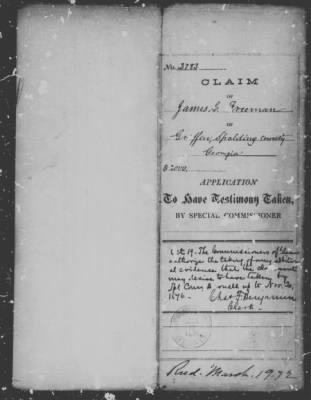 No. 3783
CLAIM
OF
James G. Freeman
IN
Griffin, Spalding County
Georgia
$ 2000.
APPLICATION
To Have Testimony Taken,
BY SPECIAL COMMISSIONER
Oct 19. The Commissioners of Claims
authorize the taking of any addition
al evidence that the claimant
may desire to have taken by
Spl Com up to Nov. 20,
1876.
Chas F. Benjamin
Clerk.
Recd. March.